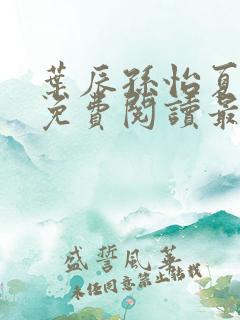 葉辰孫怡夏
免費閱讀最
盛誓風華
未經同意禁止轉載